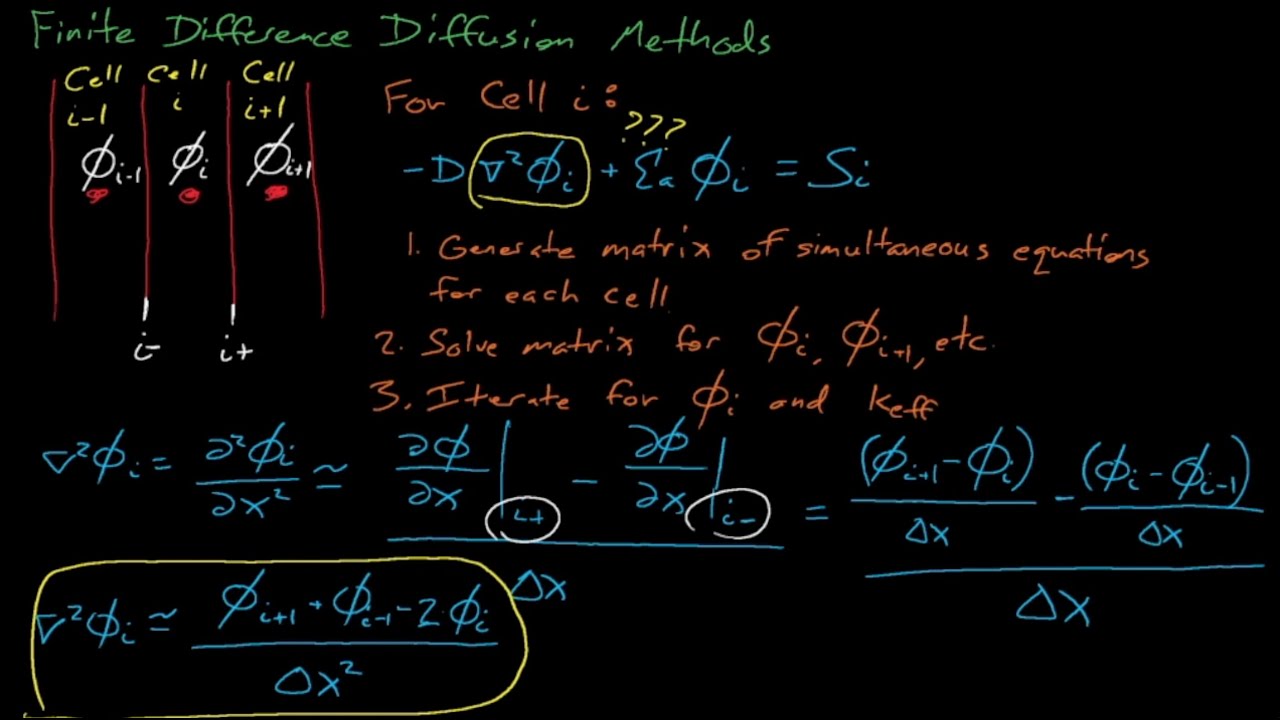 Finite Difference Diffusion Methods
Cell i-1 Cell i Cell i+1
ϕᵢ₋₁ ϕᵢ ϕᵢ₊₁
i- i+
For Cell i:
???
-D ∇²ϕᵢ + Σₐ ϕᵢ = Sᵢ
1. Generate matrix of simultaneous equations
for each cell
2. Solve matrix for ϕᵢ, ϕᵢ₊₁, etc.
3. Iterate for ϕᵢ and Keff
∇²ϕᵢ = ∂²ϕᵢ/∂x² ≃ (∂ϕ/∂x|i+ - ∂ϕ/∂x|i-)/Δx = ((ϕᵢ₊₁-ϕᵢ)/Δx - (ϕᵢ-ϕᵢ₋₁)/Δx)/Δx
∇²ϕᵢ ≃ (ϕᵢ₊₁ + ϕᵢ₋₁ - 2ϕᵢ)/Δx²